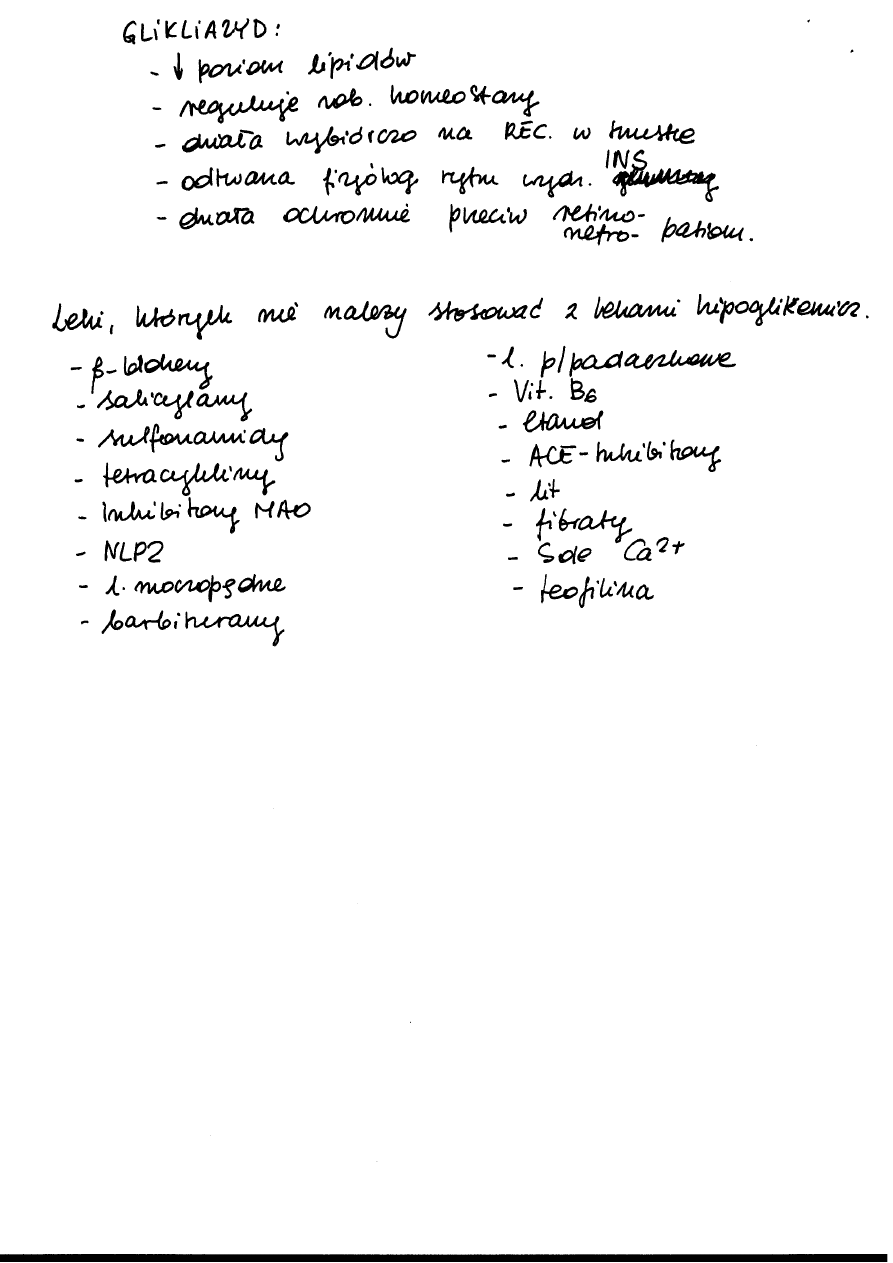 GLIKLIAZYD:
- ↓ poziom lipidów
- reguluje zab. homeostazy
- działa wybiórczo na REC. w trzustce
- odtwarza fizjolog rytm wydz. INS
- działa ochronnie przeciw retino-
nefro- patiom.
Leki, których nie należy stosować z lekami hipoglikemicz.
- β-blokery
- salicylany
- sulfonamidy
- tetracykliny
- Inhibitory MAO
- NLPZ
- l. moczopędne
- barbiturany
- l. p/padaczkowe
- Vit. B6
- etanol
- ACE-Inhibitory
- lit
- fibraty
- Sole Ca2+
- teofilina